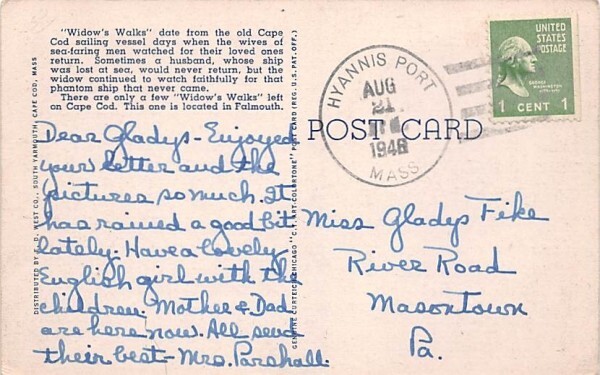 "Widow's Walks" date from the old Cape
Cod sailing vessel days when the wives of
sea-faring men watched for their loved ones
return. Sometimes a husband, whose ship
was lost at sea, would never return, but the
widow continued to watch faithfully for that
phantom ship that never came.
There are only a few "Widow's Walks" left
on Cape Cod. This one is located in Falmouth.
DISTRIBUTED BY E. D. WEST CO., SOUTH YARMOUTH, CAPE COD, MASS
GENUINE CURTEICH-CHICAGO "C.T. ART-COLORTONE" POST CARD (REG. U.S. PAT. OFF.)
POST CARD
HYANNIS PORT
AUG
21
1946
MASS
UNITED
STATES
POSTAGE
GEORGE
WASHINGTON
1 CENT 1
Dear Gladys - Enjoyed
your letter and the
pictures so much. It
has rained a good bit
lately. Have a lovely
English girl with the
children. Mother & Dad
are here now. All send
their best - Mrs. Parshall.
Miss Gladys Fike
River Road
Masontown
Pa.